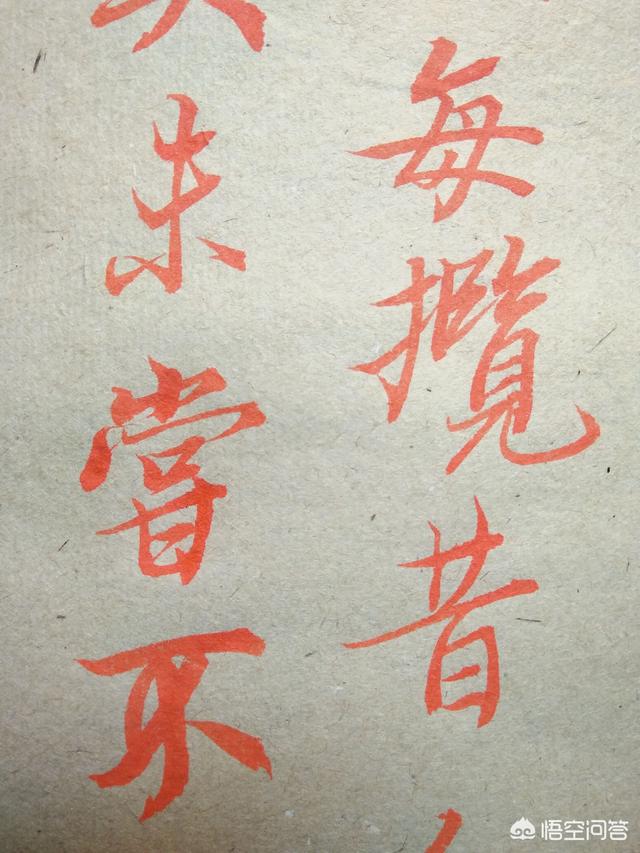 每攬昔
未嘗不
悟空问答